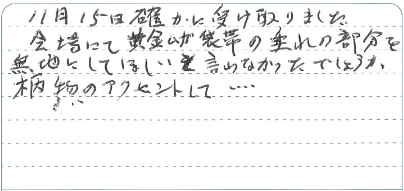 11月15日確かに受け取りました
会場にて黄金ムガ袋帯の垂れの部分を
無地にしてほしいと言わなかったでしょうか
柄物のアクセントして ‥‥